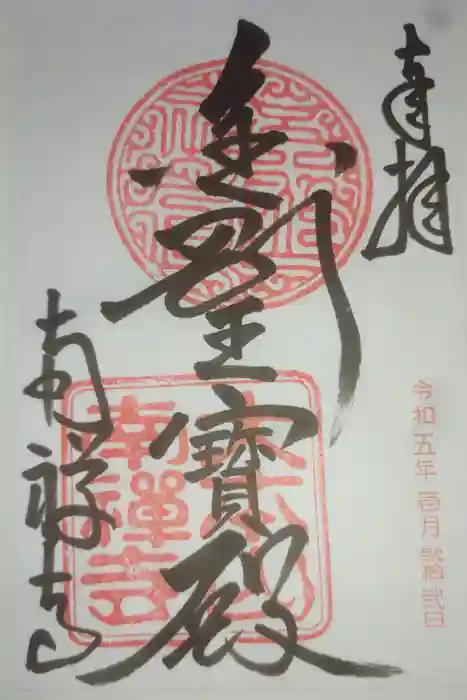 奉拝
金剛王寶殿
南禅寺
大本山
南禪寺
令和五年壱月弐拾弐日